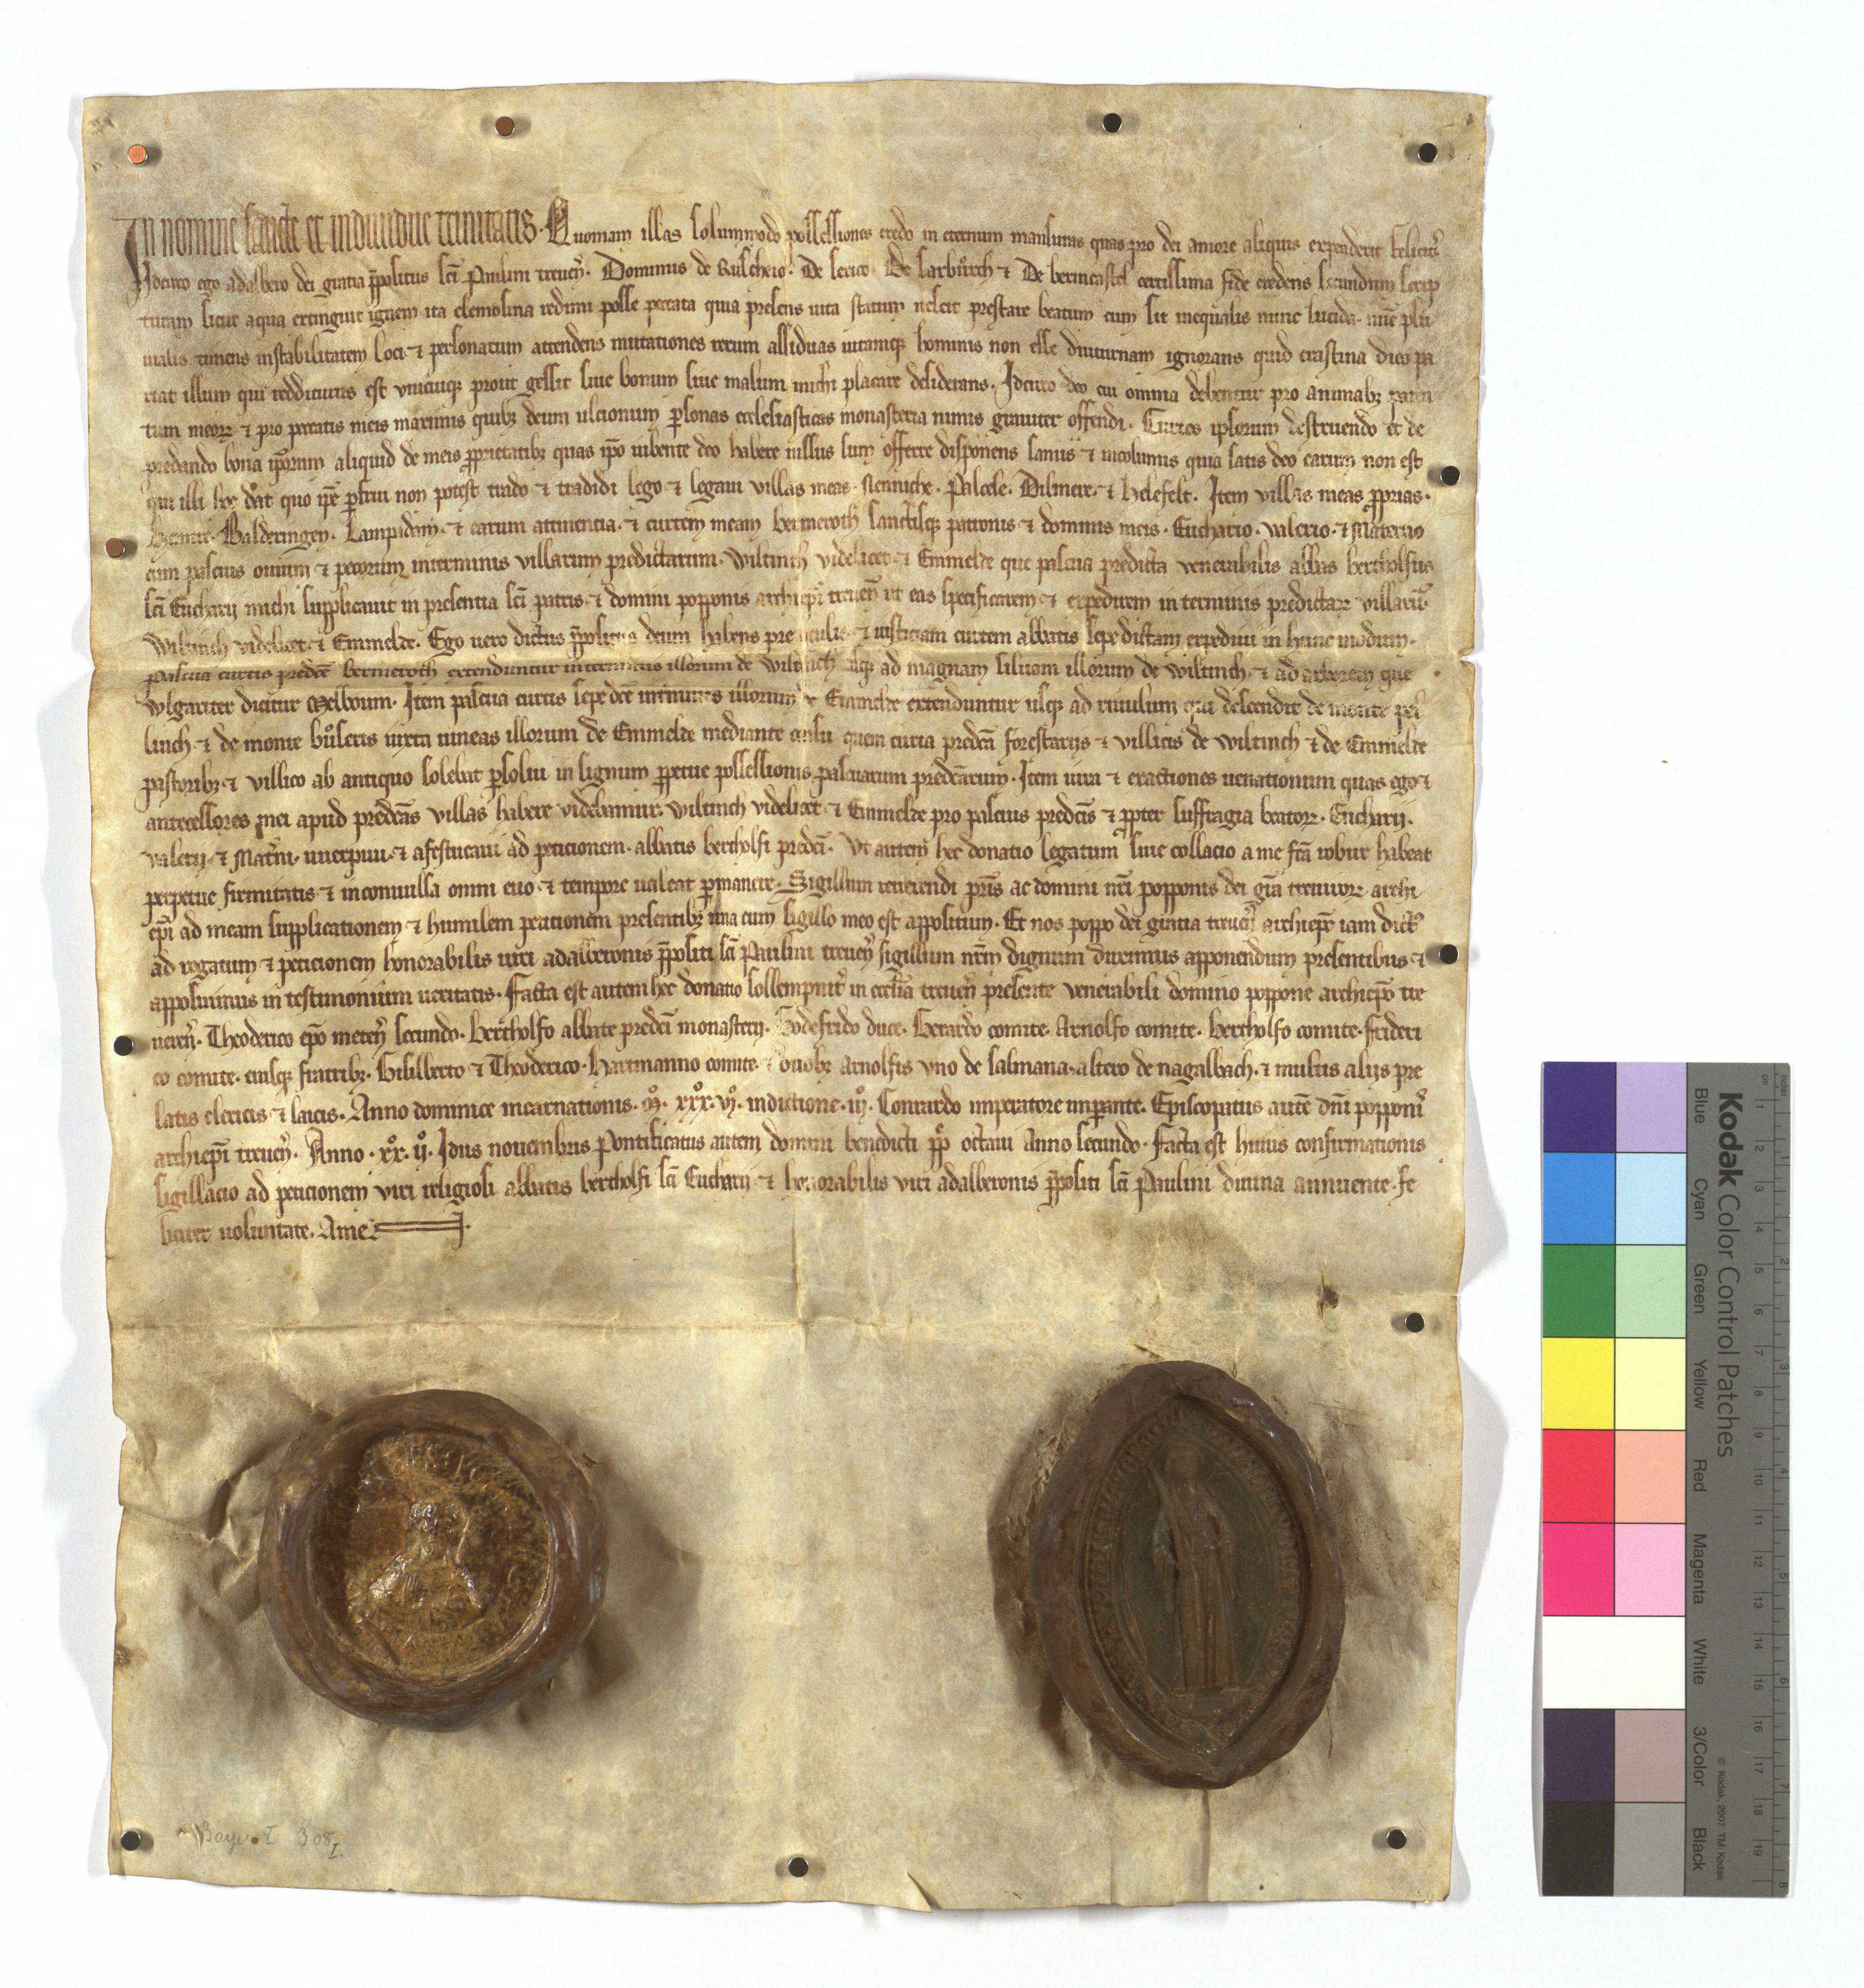 In nomine sancte et indiuidue trinitatis. Quoniam illas solummodo possessiones credo in eternum mansuras quas pro dei amore aliquis expenderit felicit᷑
Idcirco ego adalbero dei gratia p̄positus sc̄i Paulini treuer̄. Dominus de Ruscheio. De serico. De Sarbůrch ⁊ De berincastel certissima fide credens secundum scrip
turam sicut aqua extinguit ignem ita elemosina redimi posse peccata quia presens uita statum nescit prestare beatum cum sit inequalis nunc lucida. nūc plu
uialis. timens instabilitatem loci ⁊ personarum attendens mutationes rerum assiduas uitamqꝫ hominis non esse diuturnam ignorans quid crastina dies pa
riat illum qui redditurus est vnicuiqꝫ prout gessit siue bonum siue malum michi placare desiderans. Idcirco deo cui omnia debentur pro animabꝫ paren
tum meoꝝ ⁊ pro peccatis meis maximis quibꝫ deum ulcionum ꝑsonas ecclesiasticas monasteria nimis grauiter offendi. Curtes ipsorum destruendo et de
predando bona ip̄orum aliquid de meis ꝓprietatibꝫ quas ip̄o iubente deo habere iussus sum offerre disponens sanus ⁊ incolumis quia satis deo carum non est
qui illi hec dat quo ip̄e ꝑfrui non potest trado ⁊ tradidi lego ⁊ legaui villas meas. Nenniche. Palcele. Dilmere. ⁊ Helefelt. Item villas meas ꝓprias.
Hentre. Balderingen. Lampadam. ⁊ earum attinentia. ⁊ curtem meam bermeroth sanctisqꝫ patronis ⁊ dominis meis. Euchario. valerio. ⁊ Materno
cum pascuis ouium ⁊ pecorum in terminis villarum predictarum. Wiltinch videlicet ⁊ Emmelde que pascua predicta venerabilis abbas bertholfus
sc̄i Eucharij michi supplicauit in presentia sc̄i patris ⁊ domini popponis archiep̄i treuer̄ ut eas specificarem ⁊ expedirem in terminis predictaꝝ villarū.
Wiltinch videlicet ⁊ Emmelde. Ego vero dictus p̄positus deum habens pre oculis ⁊ iusticiam curtem abbatis sepe dictam expediui in hunc modum.
Pascua curtis predc̄e Bermeroth extenduntur in terminis illorum de Wiltinch usqꝫ ad magnam siluam illorum de wiltinch. ⁊ ad arborem que
wlgariter dicitur Melboum. Item pascua curtis sepe dc̄e in terminis illorum de Emmelde extenduntur usqꝫ ad riuulum qui descendit de monte pel
linch ⁊ de monte bůseris iuxta uineas illorum de Emmelde mediante censu quem curia predc̄a forestarijs ⁊ villicis de wiltinch ⁊ de Emmelde
pastoribꝫ ⁊ villico ab antiquo solebat ꝑsolui in signum ꝑpetue possessionis pascuarum predc̄arum. Item iura ⁊ exactiones uenationum quas ego ⁊
antecessores mei apud predc̄as villas habere videbamur. wiltinch videlicet ⁊ Emmelde pro pascuis predc̄is ⁊ ꝓpter suffragia beatoꝝ. Eucharij.
valerij. ⁊ Mat᷑ni. uuerpiui. ⁊ afestucaui ad peticionem. abbatis bertholfi predc̄i. Vt autem hec donatio legatum siue collacio a me fc̄a robur habeat
perpetue firmitatis ⁊ inconuulsa omni euo ⁊ tempore ualeat ꝑmanere. Sigillum reuerendi pr̄is ac domini nr̄i popponis dei gr̄a treuiroꝝ archi
ep̄i ad meam supplicationem ⁊ humilem peticionem presentibꝫ una cum sigillo meo est appositum. Et nos poppo dei gratia treuer̄ archiep̄c iam dict᷒
ad rogatum ⁊ peticionem honorabilis uiri adalberonis p̄positi sc̄i Paulini treuer̄ sigillum nr̄m dignum duximus apponendum presentibus ⁊
apposuimus in testimonium ueritatis. Facta est autem hec donatio sollempnit᷑ in eccl̄ia treuer̄ presente venerabili domino poppone archiep̄o tre
ueren̄. Theoderico ep̄o meten̄ secundo. Bertholfo abbate predc̄i monasterij. Godefrido duce. Gerardo comite. Arnolfo comite. Bertholfo comite. frideri
co comite. eiusqꝫ fratribꝫ. Gisilberto ⁊ Theoderico. Hartmanno comite. ⁊ duobꝫ arnolfis vno de salmana. altero de nagalbach. ⁊ multis alijs pre
latis clericis ⁊ laicis. Anno dominice incarnationis. M̊. xxx̊. vj̊. indictione. iij̊. Conrardo imperatore imꝑante. Episcopatus autē dn̄i popponis
archiep̄i treuer̄. Anno. xx̊. ij̊. Idus nouembris Pontificatus autem domini benedicti pp̄ octaui Anno secundo. Facta est huius confirmationis
sigillacio ad peticionem viri religiosi abbatis bertholfi sc̄i Eucharij ⁊ honorabilis viri adalberonis p̄positi sc̄i Paulini diuina annuente. fe
liciter uoluntate. Amen.
Bayer. I 308 I.
Kodak Color Control Patches
Blue Cyan Green Yellow Red Magenta White 3/Color Black
© Kodak, 2007. TM: Kodak